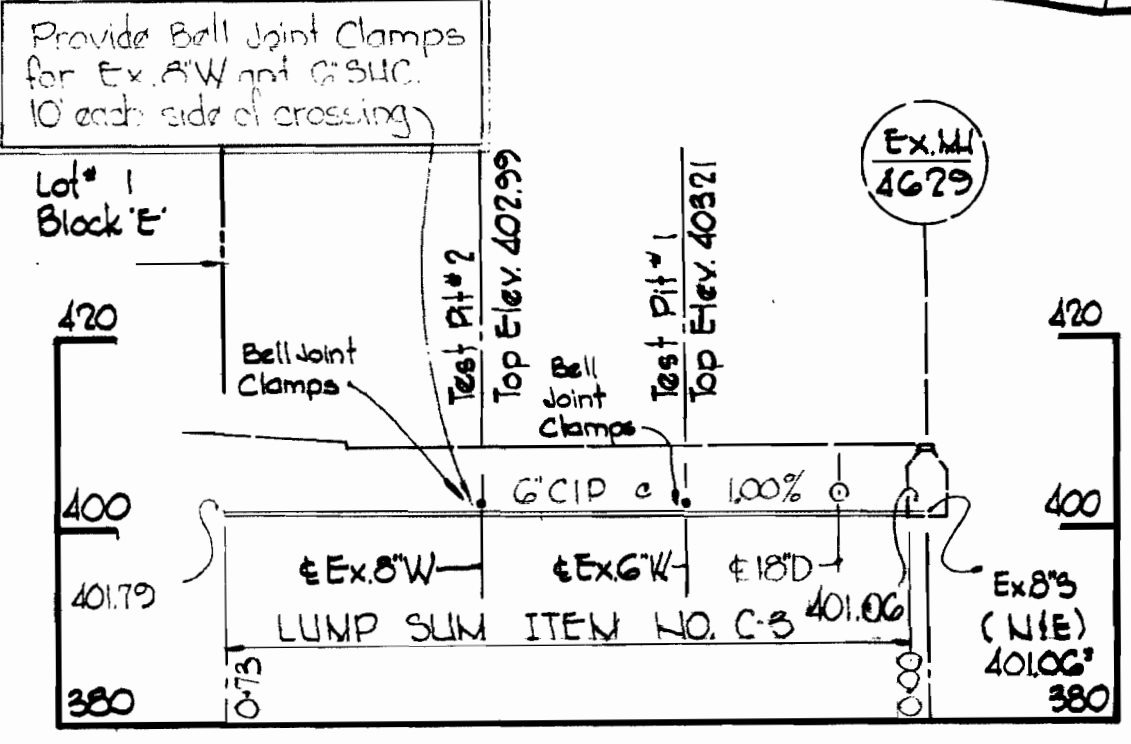 Provide Bell Joint Clamps
for Ex. 8"W and 6"SHC.
10' each side of crossing
Lot# 1
Block 'E'
Test Pit #2
Top Elev. 402.99
Test Pit # 1
Top Elev. 403.21
Ex. MH
4679
420
420
Bell Joint
Clamps
Bell
Joint
Clamps
6"CIP @ 1.00%
400
400
℄ Ex. 8"W
℄ Ex. 6"W
℄ 18"D
401.79
401.06
Ex 8"S
(N&E)
401.06±
LUMP SUM ITEM NO. C-3
0+73
0+00
380
380